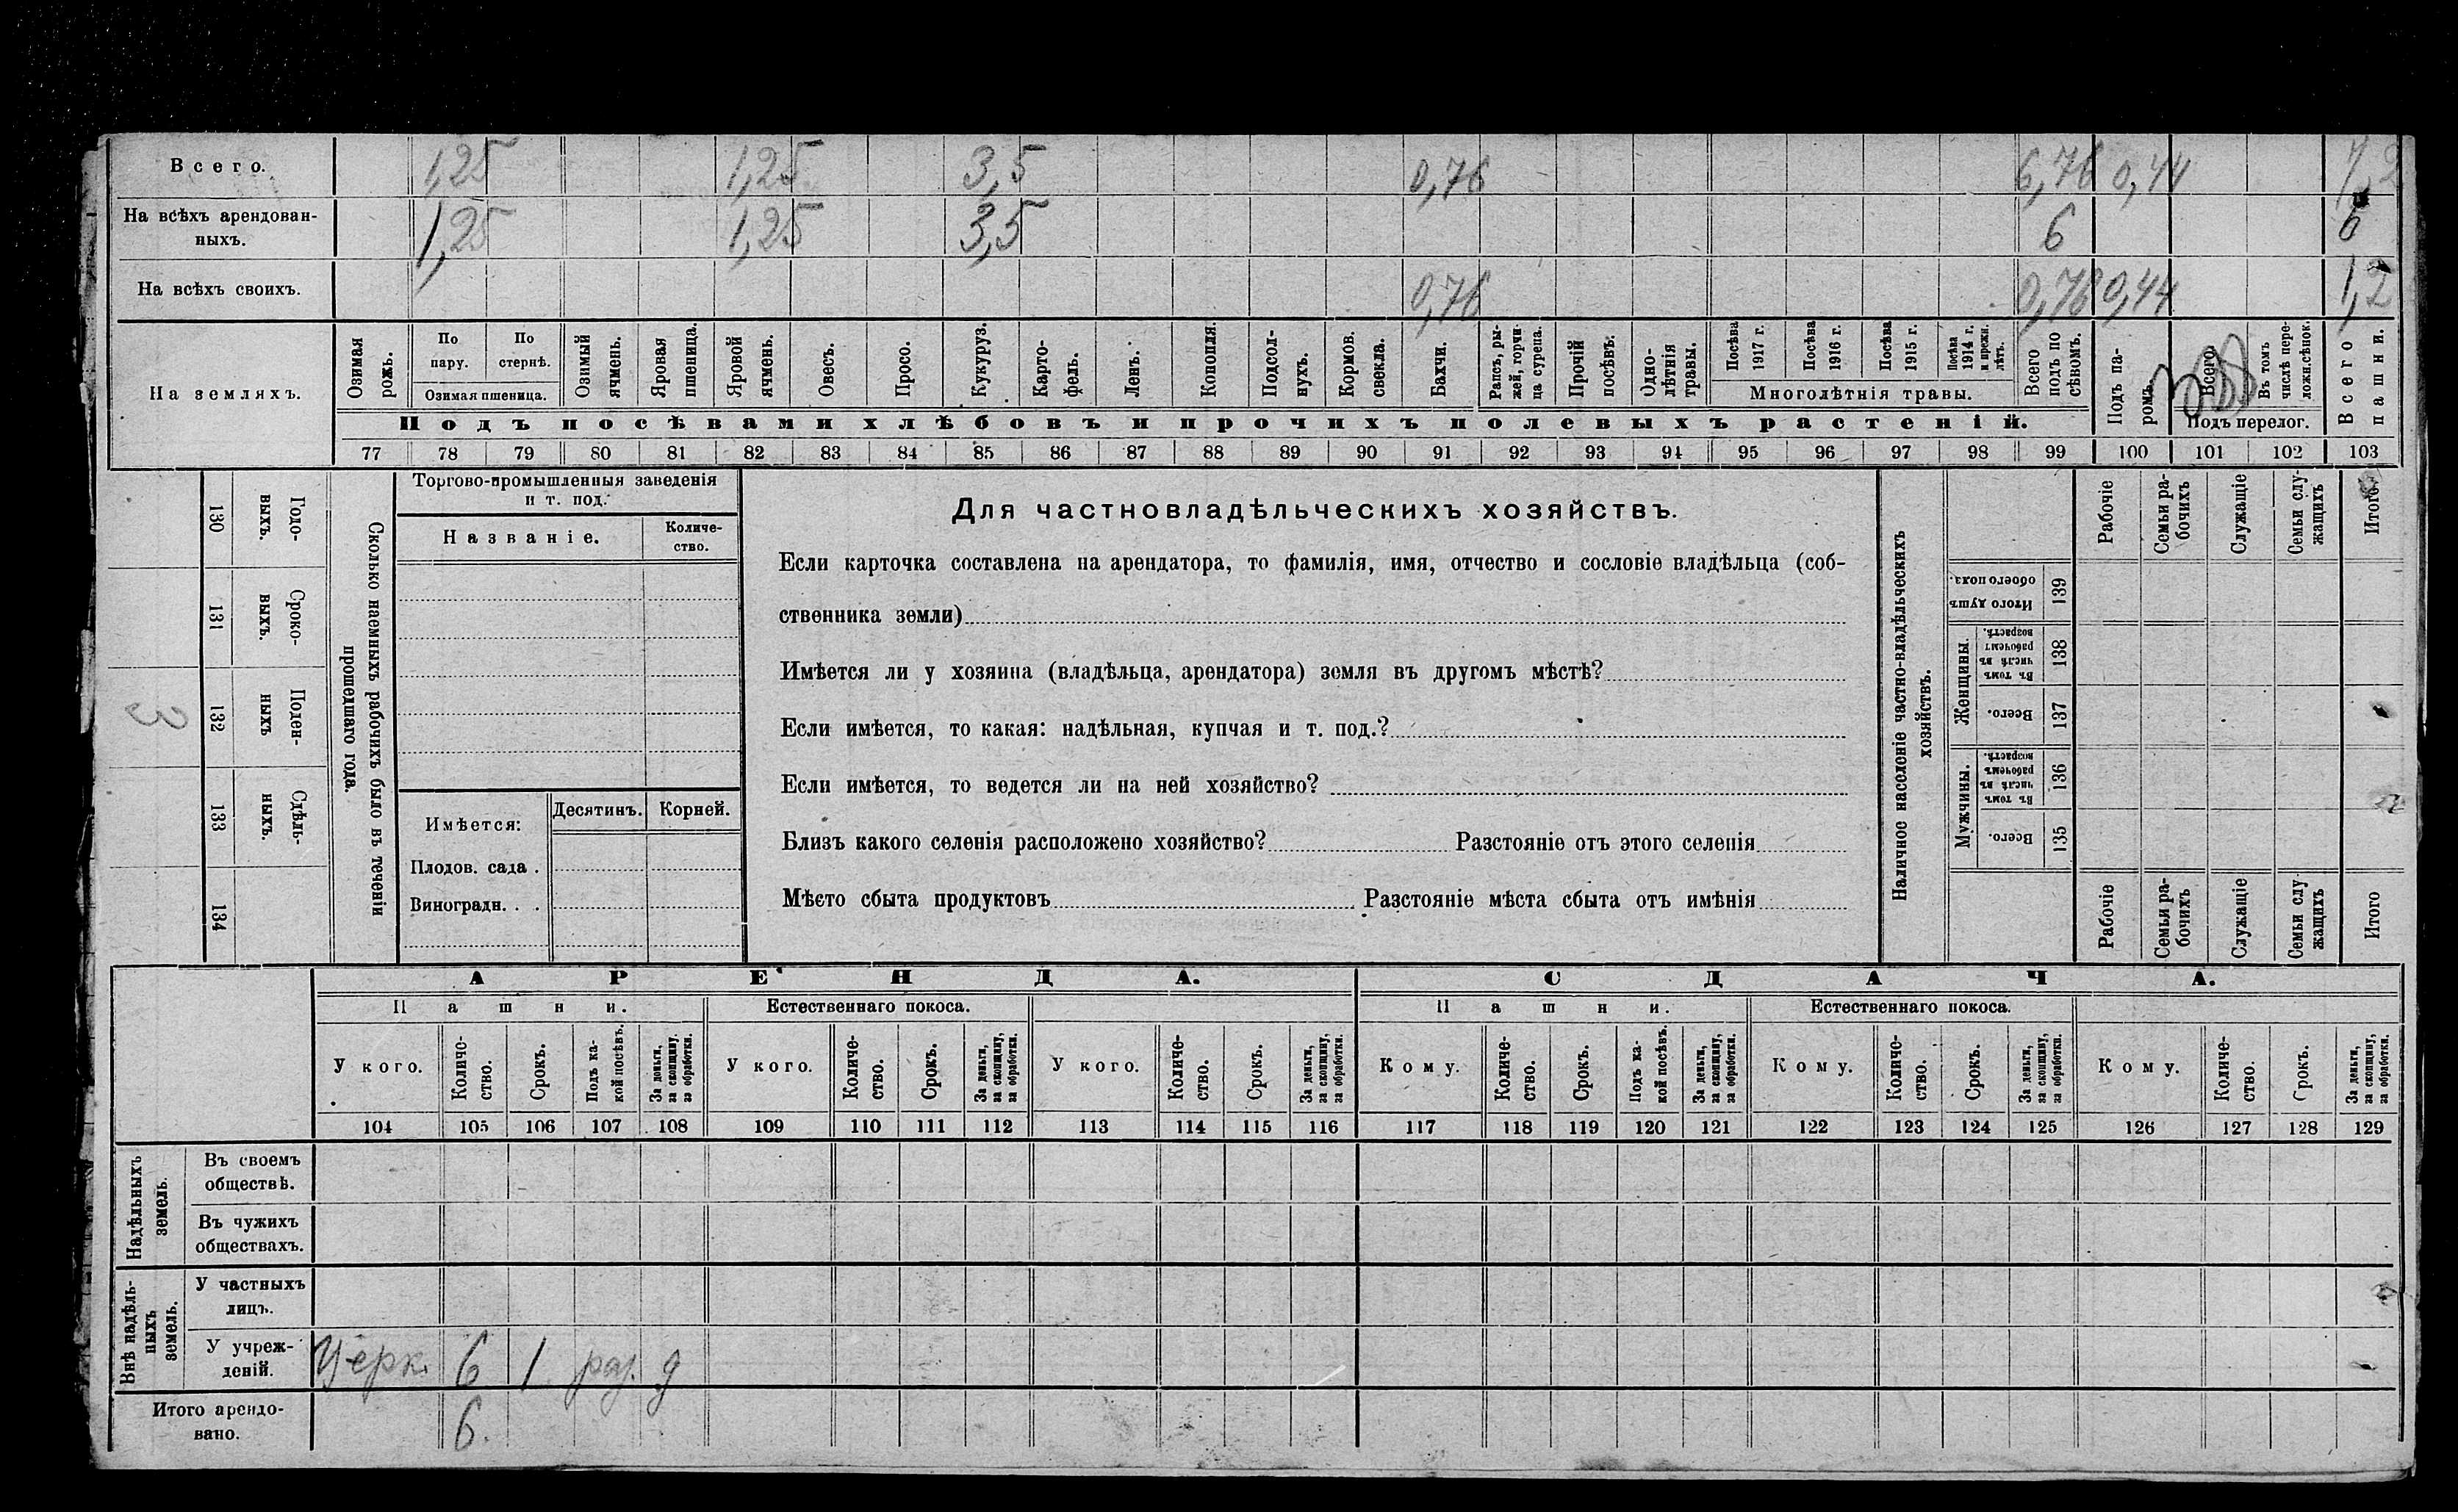 Всего. 1,25 1,25 3,5 0,76 6,76 0,44 7,2
На всѣхъ арендован-
ныхъ. 1,25 1,25 3,5 6 6
На всѣхъ своихъ. 0,76 0,76 0,44 1,2
На земляхъ.
Озимая рожь.
По пару.
По стернѣ.
Озимая пшеница.
Озимый ячмень.
Яровая пшеница.
Яровой ячмень.
Овесъ.
Просо.
Кукуруз.
Карто-
фель.
Ленъ.
Конопля.
Подсол-
нухъ.
Кормов. свекла.
Бахчи.
Рапсъ, ры-
жей, горчи-
ца сурепа.
Прочій посѣвъ.
Одно-
лѣтнія травы.
Посѣва 1917 г.
Посѣва 1916 г.
Посѣва 1915 г.
Посѣва 1914 г. и прежн. лѣтъ.
Многолѣтнія травы.
Всего подъ по сѣвомъ.
Подъ па-
ромъ.
Всего
Въ томъ числѣ пере-
ложн.сѣнок.
Подъ перелог.
Всего пашни.
Подъ посѣвами хлѣбовъ и прочихъ полевыхъ растеній.
77 78 79 80 81 82 83 84 85 86 87 88 89 90 91 92 93 94 95 96 97 98 99 100 101 102 103
130 Годо-
выхъ.
131 Сроко-
выхъ.
3 132 Поден-
ныхъ
133 Сдѣль-
ныхъ.
134
Сколько наемныхъ рабочихъ было въ теченіи
прошедшаго года.
Торгово-промышленныя заведенія
и т. под.
Названіе. Количе-
ство.
Имѣется: Десятинъ. Корней.
Плодов. сада .
Виноградн. . .
Для частновладѣльческихъ хозяйствъ.
Если карточка составлена на арендатора, то фамилія, имя, отчество и сословіе владѣльца (соб-
ственника земли)
Имѣется ли у хозяина (владѣльца, арендатора) земля въ другомъ мѣстѣ?
Если имѣется, то какая: надѣльная, купчая и т. под.?
Если имѣется, то ведется ли на ней хозяйство?
Близъ какого селенія расположено хозяйство? Разстояніе отъ этого селенія
Мѣсто сбыта продуктовъ Разстояніе мѣста сбыта отъ имѣнія
Наличное населеніе частно-владѣльческихъ
хозяйствъ.
Рабочіе
Семьи ра-
бочихъ
Служащіе
Семьи слу-
жащихъ
Итого.
Итого душъ обоего пола. 139
Женщины.
Въ томъ числѣ въ рабочемъ возрастѣ. 138
Всего. 137
Мужчины.
Въ томъ числѣ въ рабочемъ возрастѣ. 136
Всего. 135
Рабочіе
Семьи ра-
бочихъ
Служащіе
Семьи слу
жащихъ
Итого
АРЕНДА. СДАЧА.
Пашни. Естественнаго покоса. Пашни. Естественнаго покоса.
У кого.
Количе-
ство.
Срокъ.
Подъ ка-
кой посѣвъ.
За деньги,
за скопщину,
за обработки.
У кого.
Количе-
ство.
Срокъ.
За деньги,
за скопщину,
за обработки.
У кого.
Количе-
ство.
Срокъ.
За деньги,
за скопщину,
за обработки.
Кому.
Количе-
ство.
Срокъ.
Подъ ка-
кой посѣвъ.
За деньги,
за скопщину,
за обработки.
Кому.
Количе-
ство.
Срокъ.
За деньги,
за скопщину,
за обработки.
Кому.
Количе-
ство.
Срокъ.
За деньги,
за скопщину,
за обработки.
104 105 106 107 108 109 110 111 112 113 114 115 116 117 118 119 120 121 122 123 124 125 126 127 128 129
Надѣльныхъ
земель.
Въ своемъ
обществѣ.
Въ чужихъ
обществахъ.
Внѣ надѣль-
ныхъ
земель.
У частныхъ
лицъ.
У учреж-
деній. Церк. 6 1 раз. д
Итого арендо-
вано. 6.